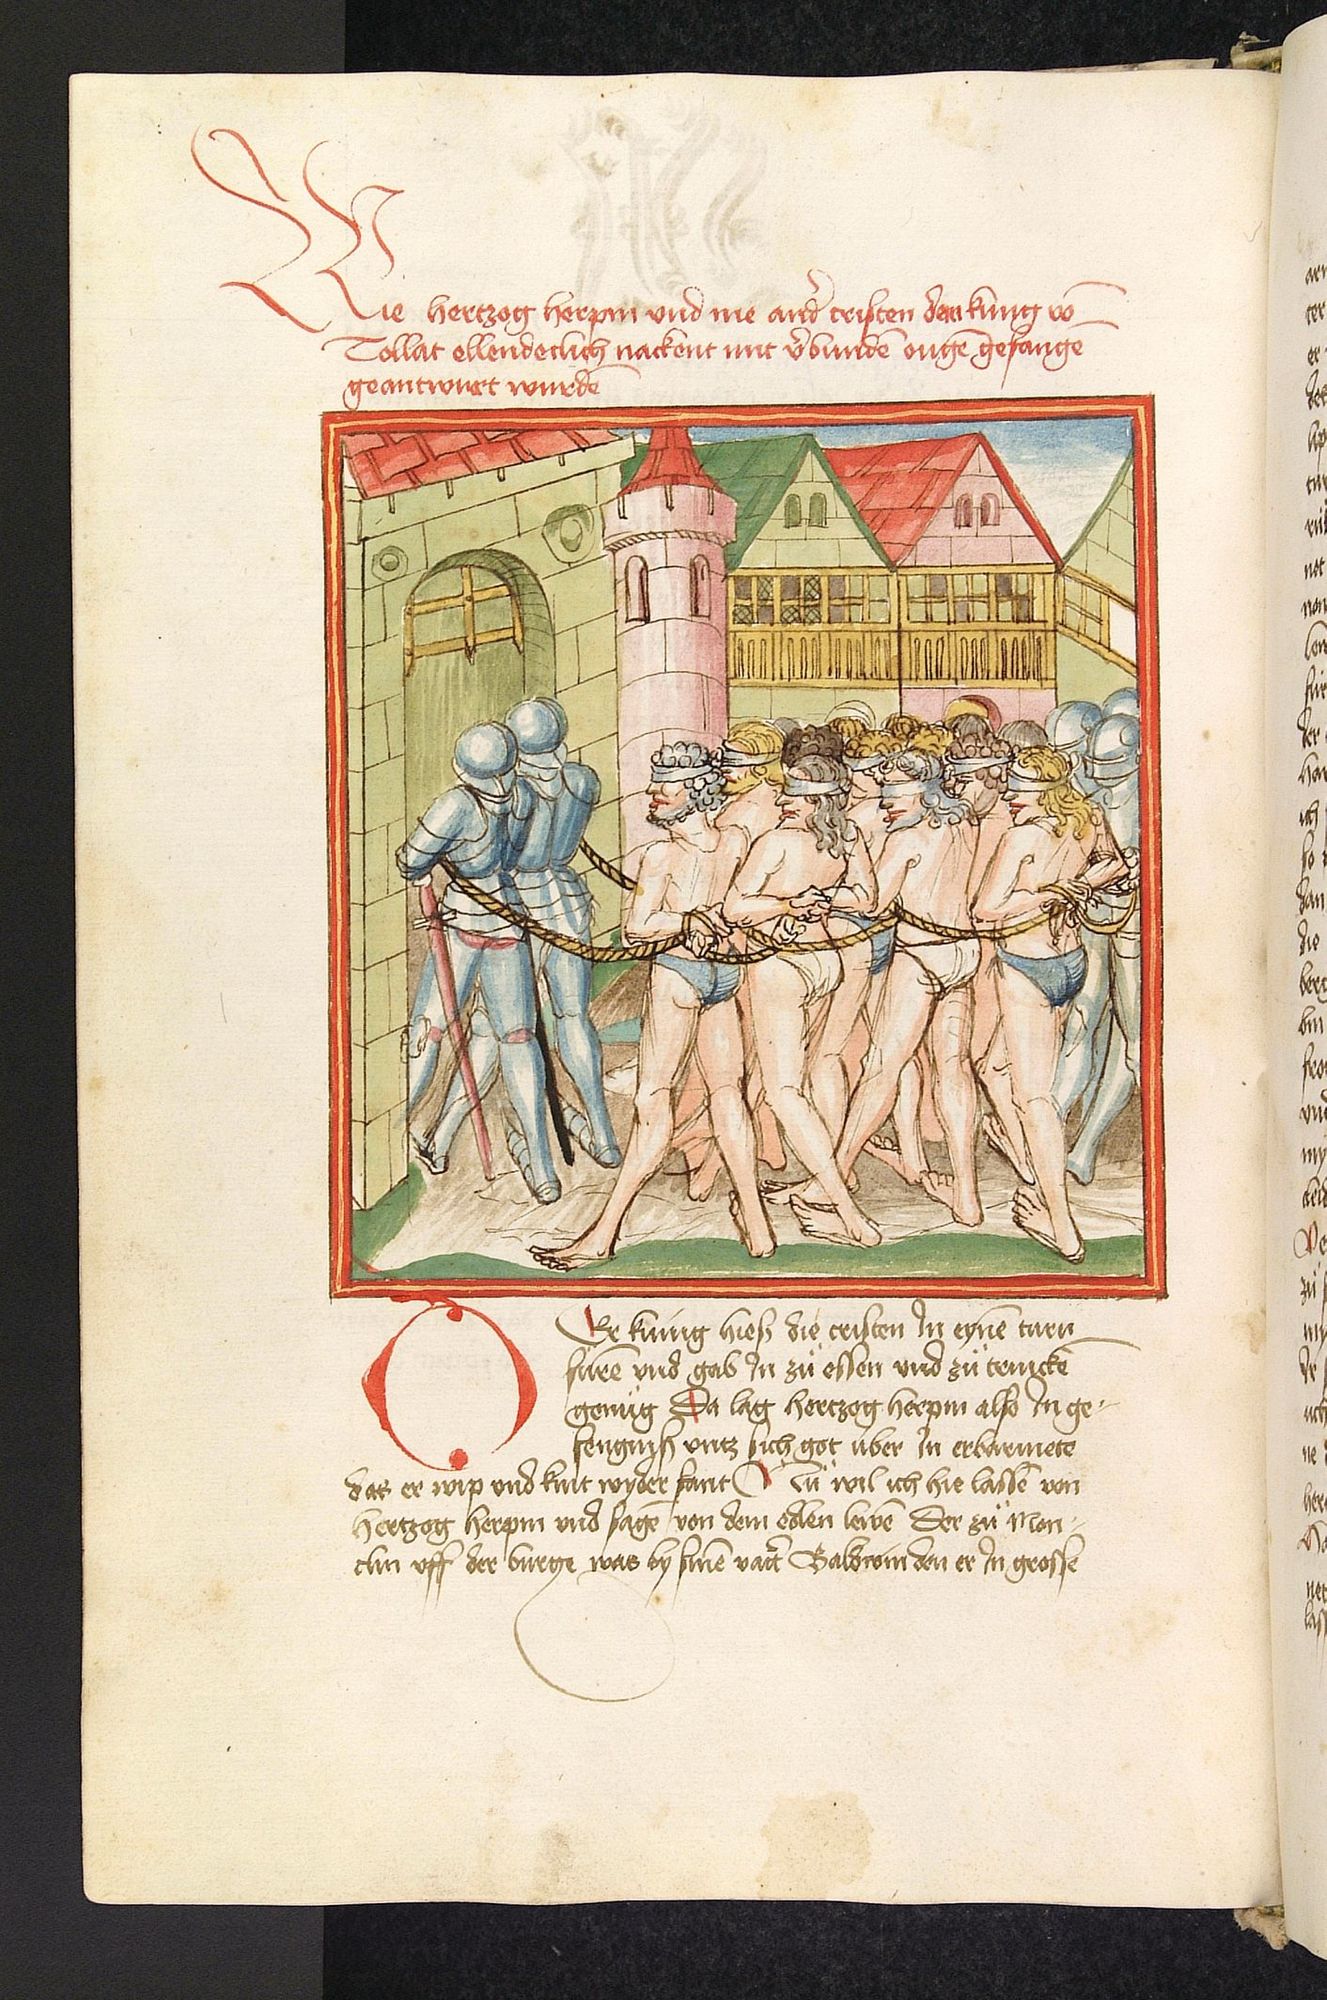 Wie hertzog herpin vnd me and̄ cristen dem kunig vō
Tollat ellendeclich nackent mit v̄bunden̄ ougē gefangē
geantwurt wurdē
Er kunig hieß die cristen In eynē turn
furē vnd gab In zů essen vnd zů trinckē
genůg Da lag hertzog herpin also In ge-
fengniß vntz sich got über In erbarmete
das er wip vnd kint wyder fant Nů wil ich hie lassē von
hertzog herpin vnd sagē von dem edlen lewē Der zů Mon-
clin vff der burge was by sinē vatt̄ Baldewin den er In grosse